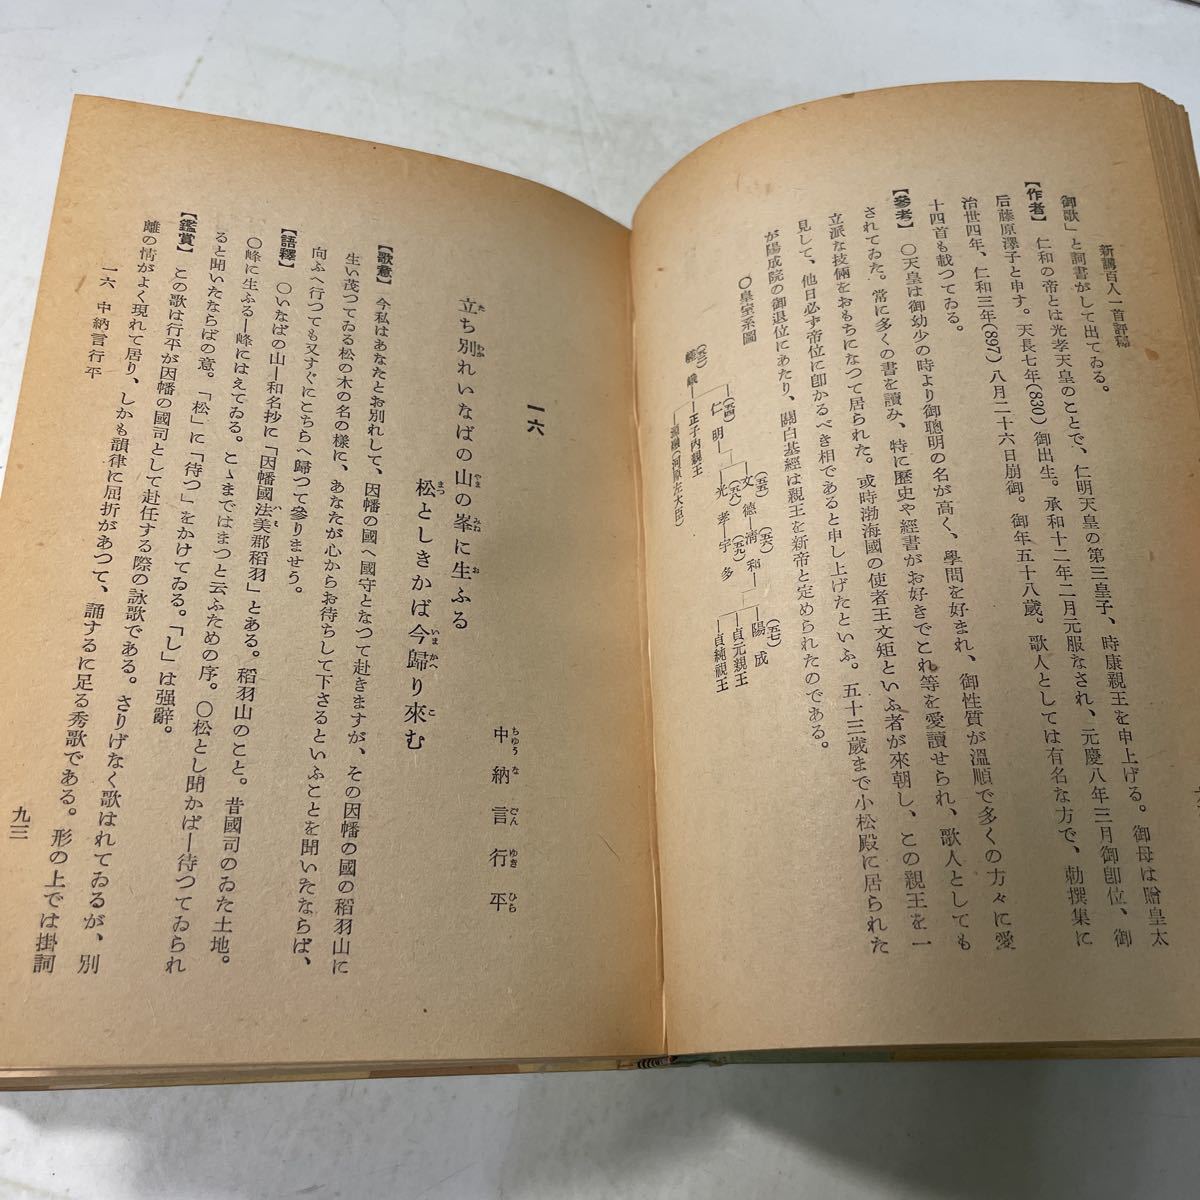 新講百人一首評釋
御歌」と詞書がして出てゐる。
【作者】 仁和の帝とは光孝天皇のことで、仁明天皇の第三皇子、時康親王を申上げる。御母は贈皇太
后藤原澤子と申す。天長七年(830)御出生。承和十二年二月元服なされ、元慶八年三月御卽位、御
治世四年、仁和三年(897)八月二十六日崩御。御年五十八歲。歌人としては有名な方で、勅撰集に
十四首も載つてゐる。
【參考】 〇天皇は御幼少の時より御聰明の名が高く、學問を好まれ、御性質が溫順で多くの方々に愛
されてゐた。常に多くの書を讀み、特に歷史や經書がお好きでこれ等を愛讀せられ、歌人としても
立派な技倆をおもちになつて居られた。或時渤海國の使者王文矩といふ者が來朝し、この親王を一
見して、他日必ず帝位に卽かるべき相であると申し上げたといふ。五十三歲まで小松殿に居られた
が陽成院の御退位にあたり、關白基經は親王を新帝と定められたのである。
〇皇室系圖
(五二)
嵯峨
(五四)
仁明
正子內親王
源融(河原左大臣)
(五五)
文德
(五六)
淸和
(五七)
陽成
貞元親王
貞純親王
(五八)
光孝
(五九)
宇多
一六
中納言行平
ちゆうなごんゆきひら
立ち別れいなばの山の峯に生ふる
松としきかば今歸り來む
【歌意】 今私はあなたとお別れして、因幡の國へ國守となつて赴きますが、その因幡の國の稻羽山に
生い茂つてゐる松の木の名の樣に、あなたが心からお待ちして下さるといふことを聞いたならば、
向ふへ行つても又すぐにこちらへ歸つて參りませう。
【語釋】 〇いなばの山―和名抄に「因幡國法美郡稻羽」とある。稻羽山のこと。昔國司のゐた土地。
〇峰に生ふる―峰にはえてゐる。こゝまではまつと云ふための序。〇松とし聞かば―待つてゐられ
ると聞いたならばの意。「松」に「待つ」をかけてゐる。「し」は强辭。
【鑑賞】 この歌は行平が因幡の國司として赴任する際の詠歌である。さりげなく歌はれてゐるが、別
離の情がよく現れて居り、しかも韻律に屈折があつて、誦するに足る秀歌である。形の上では掛詞
一六 中納言行平
九三